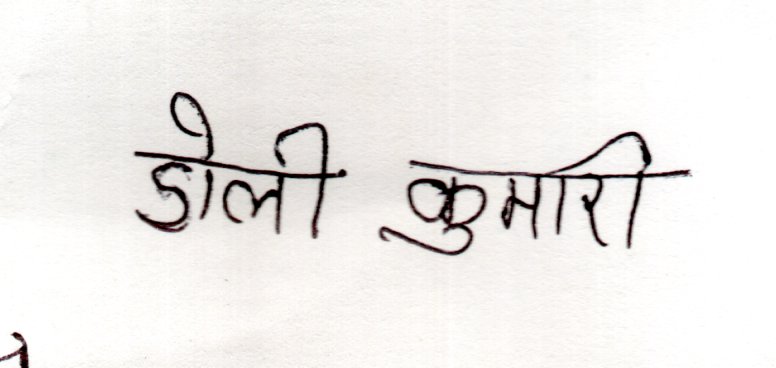 डोली कुमारी